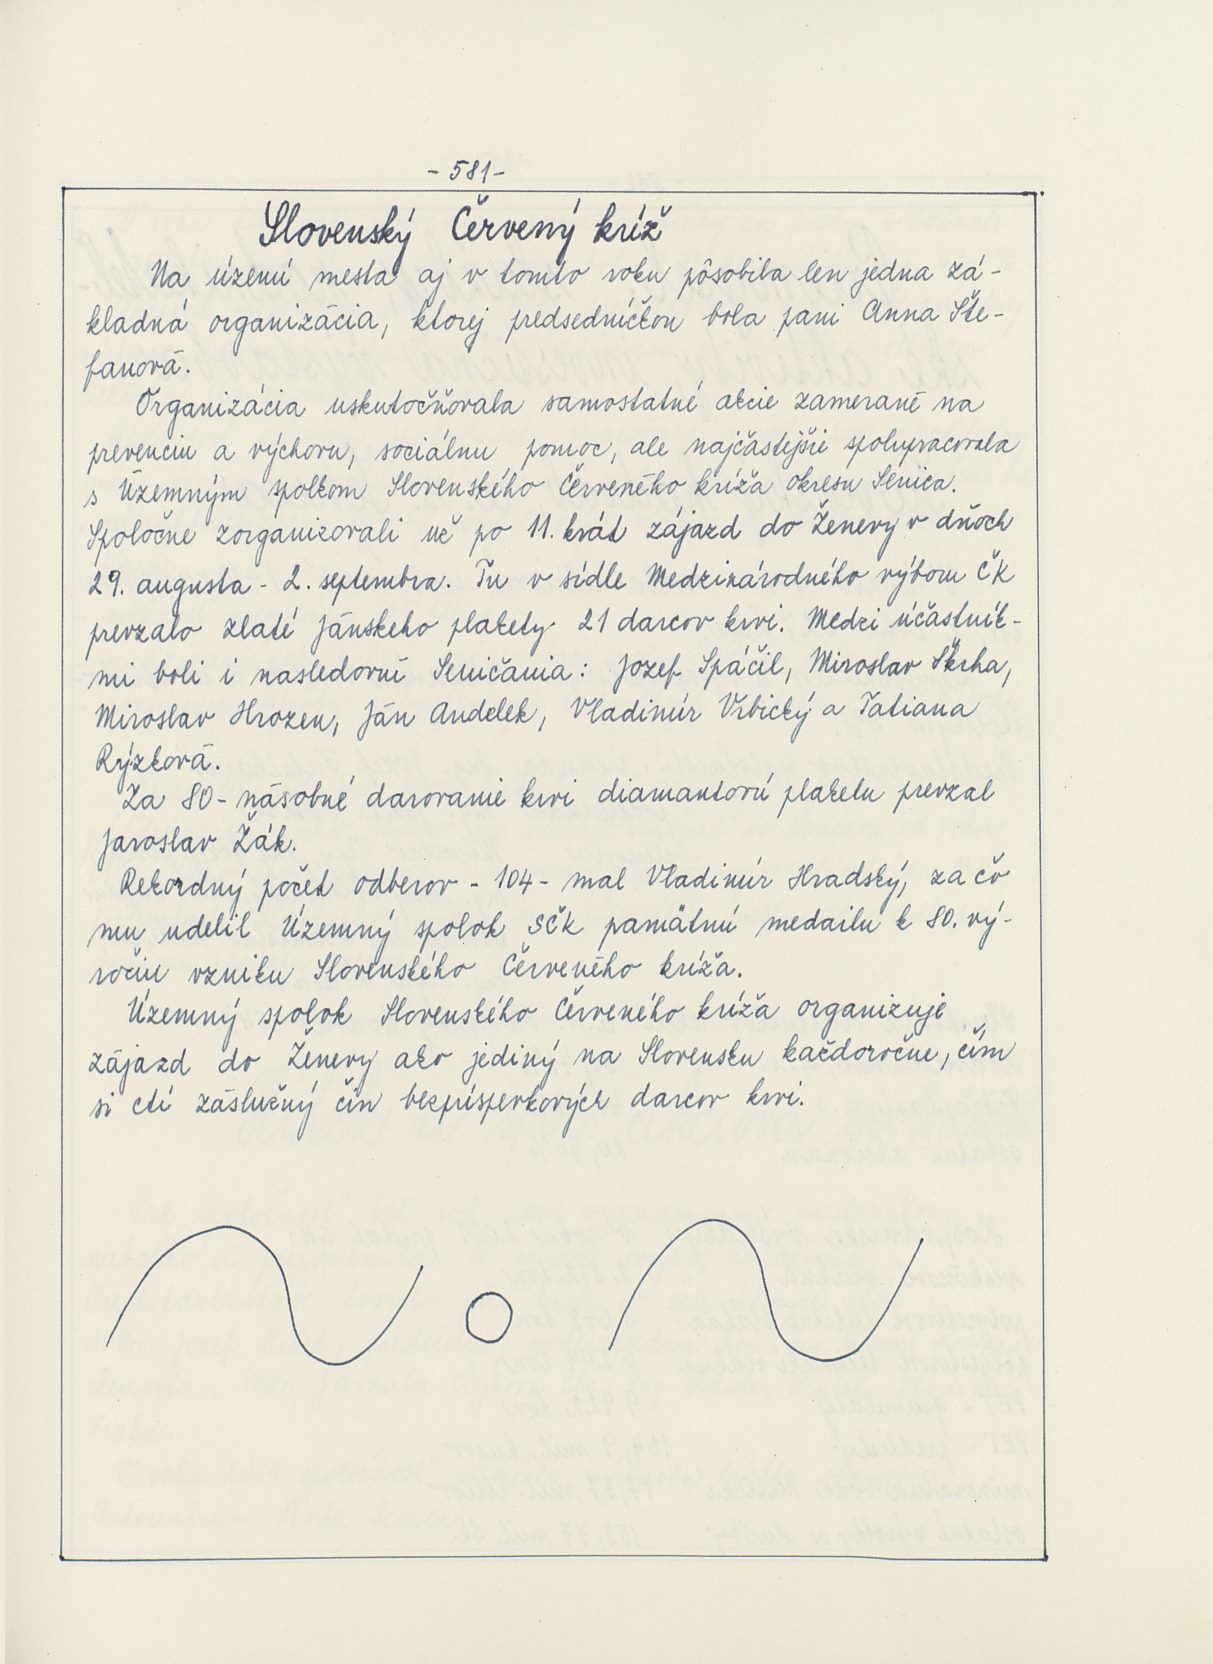 - 581 -
Slovenský Červený kríž
Na území mesta aj v tomto roku pôsobila len jedna zá-
kladná organizácia, ktorej predsedníčkou bola pani Anna Šte-
fanová.
Organizácia uskutočňovala samostatné akcie zamerané na
prevenciu a výchovu, sociálnu pomoc, ale najčastejšie spolupracovala
s Územným spolkom Slovenského Červeného kríža okresu Senica.
Spoločne zorganizovali už po 11. krát zájazd do Ženevy v dňoch
29. augusta - 2. septembra. Tu v sídle Medzinárodného výboru ČK
prevzalo zlaté Jánskeho plakety 21 darcov krvi. Medzi účastník-
mi boli i nasledovní Seničania: Jozef Spáčil, Miroslav Škrha,
Miroslav Hrozen, Ján Andelek, Vladimír Vrbický a Tatiana
Rýzková.
Za 80-násobné darovanie krvi diamantovú plaketu prevzal
Jaroslav Žák.
Rekordný počet odberov - 104 - mal Vladimír Hradský, za čo
mu udelil Územný spolok SČK pamätnú medailu k 80. vý-
ročiu vzniku Slovenského Červeného kríža.
Územný spolok Slovenského Červeného kríža organizuje
zájazd do Ženevy ako jediný na Slovensku každoročne, čím
si ctí záslužný čin bezpríspevkových darcov krvi.